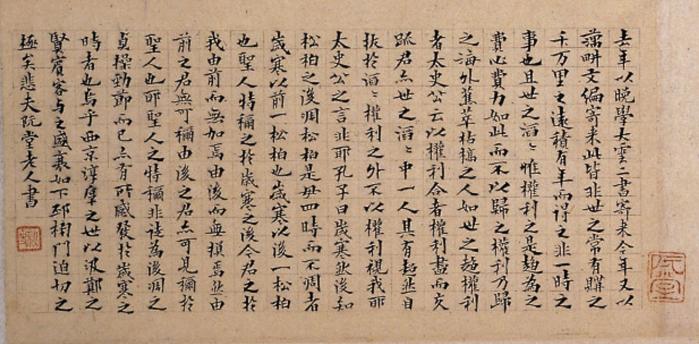 去年以晚學大雲二書寄來今年又以
藕畊文編寄來此皆非世之常有購之
千万里之遠積有年而得之非一時之
事也且世之滔〻惟權利之是趨為之
費心費力如此而不以歸之權利乃歸
之海外蕉萃枯槁之人如世之趨權利
者太史公云以權利合者權利盡而交
疏君亦世之滔〻中一人其有超然自
拔於滔〻權利之外不以權利視我耶
太史公之言非耶孔子曰歲寒然後知
松柏之後凋松柏是毋四時而不凋者
歲寒以前一松柏也歲寒以後一松柏
也聖人特稱之於歲寒之後今君之於
我由前而無加焉由後而無損焉然由
前之君無可稱由後之君亦可見稱於
聖人也耶聖人之特稱非徒為後凋之
貞操勁節而已亦有所感發於歲寒之
時者也烏乎西京淳厖之世以汲鄭之
賢賓客與之盛衰如下邳榜門迫切之
極矣悲夫阮堂老人書
阮堂